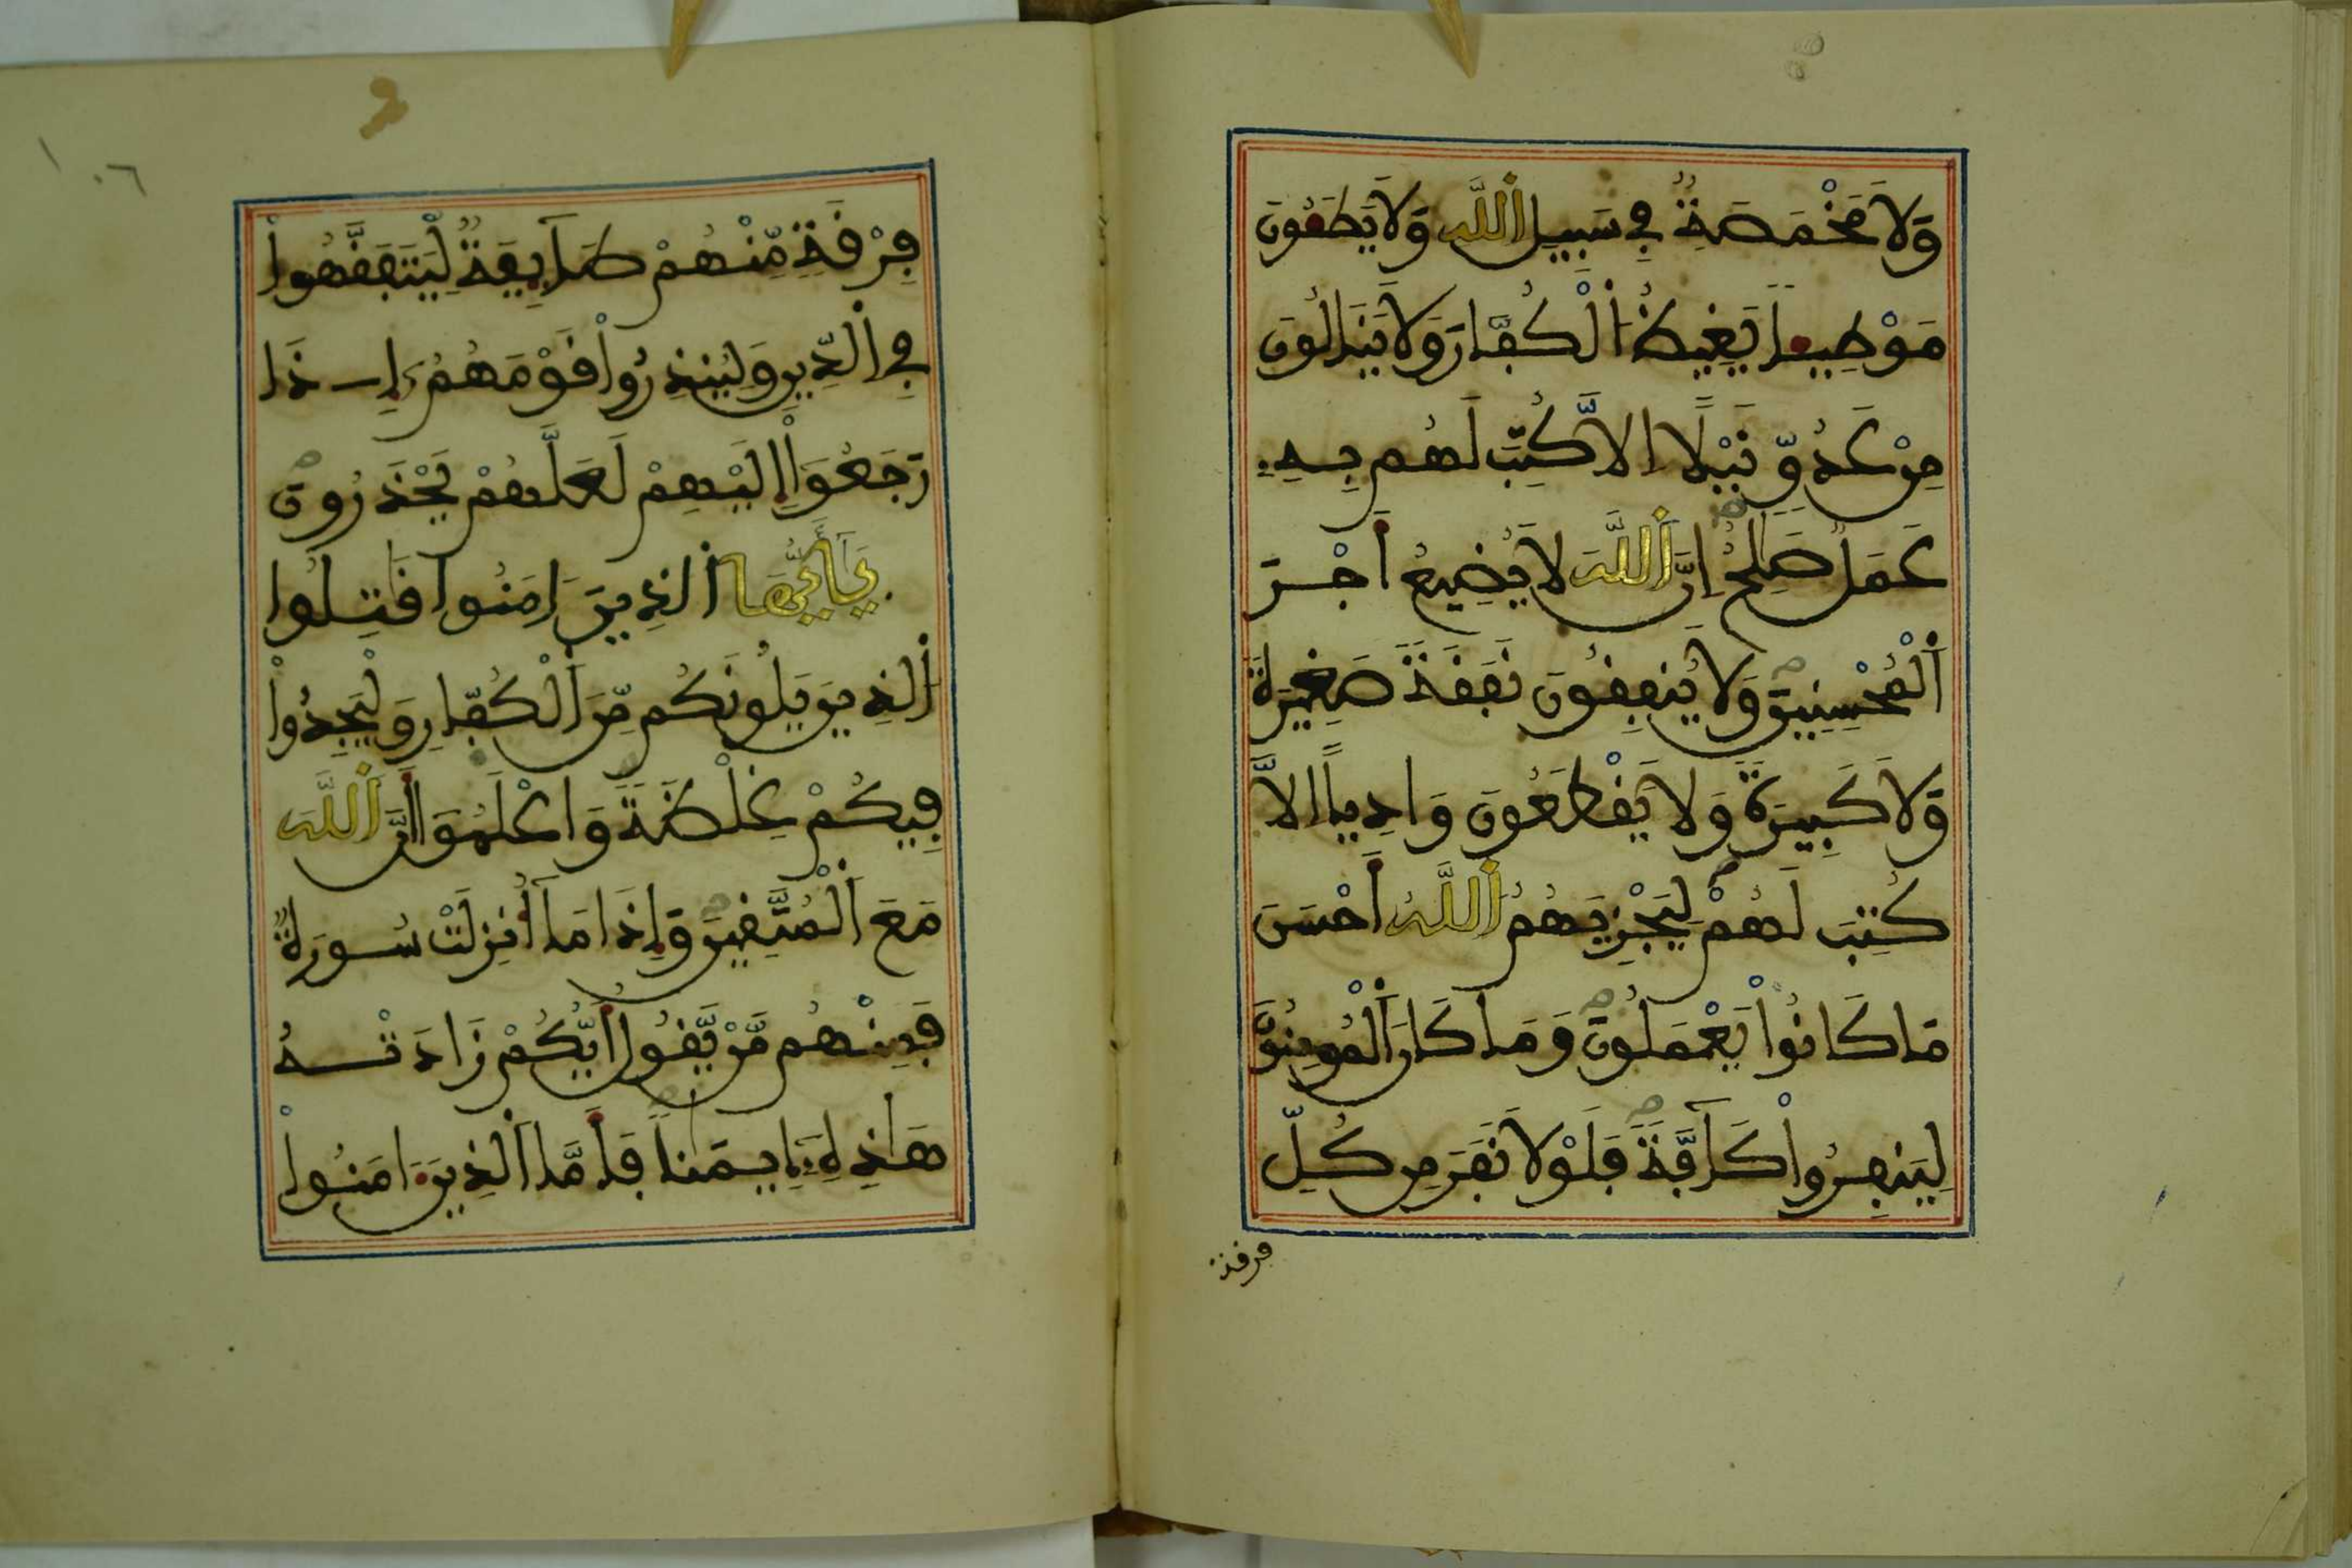 وَلَا مَخْمَصَةٌ فِي سَبِيلِ اللَّهِ وَلَا يَطَـُٔونَ
مَوْطِئًا يَغِيظُ الْكُفَّارَ وَلَا يَنَالُونَ
مِنْ عَدُوٍّ نَّيْلًا إِلَّا كُتِبَ لَهُم بِهِ
عَمَلٌ صَٰلِحٌ إِنَّ اللَّهَ لَا يُضِيعُ أَجْرَ
الْمُحْسِنِينَ وَلَا يُنفِقُونَ نَفَقَةً صَغِيرَةً
وَلَا كَبِيرَةً وَلَا يَقْطَعُونَ وَادِيًا إِلَّا
كُتِبَ لَهُمْ لِيَجْزِيَهُمُ اللَّهُ أَحْسَنَ
مَا كَانُواْ يَعْمَلُونَ وَمَا كَانَ الْمُومِنُونَ
لِيَنفِرُواْ كَآفَّةً فَلَوْلَا نَفَرَ مِن كُلِّ
فرقة
١٠٦
فِرْقَةٍ مِّنْهُمْ طَآئِفَةٌ لِّيَتَفَقَّهُواْ
فِي الدِّينِ وَلِيُنذِرُواْ قَوْمَهُمُ إِذَا
رَجَعُواْ إِلَيْهِمْ لَعَلَّهُمْ يَحْذَرُونَ
يَٰأَيُّهَا الذِينَ ءَامَنُوا قَٰتِلُوا
الذِينَ يَلُونَكُم مِّنَ الْكُفَّارِ وَلْيَجِدُواْ
فِيكُمْ غِلْظَةً وَاعْلَمُوا أَنَّ اللَّهَ
مَعَ الْمُتَّقِينَ وَإِذَا مَا أُنزِلَتْ سُورَةٌ
فَمِنْهُم مَّنْ يَّقُولُ أَيُّكُمْ زَادَتْهُ
هَٰذِهِ إِيمَٰنًا فَأَمَّا الذِينَ ءَامَنُواْ